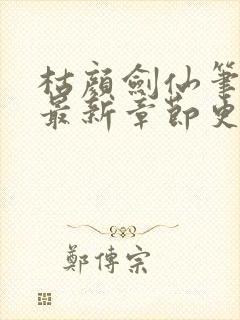 枯顏劍仙筆
最新章節史
鄭傳宗